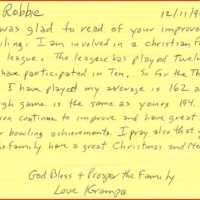 Robbe 12/11/9
was glad to read of your improve
ling. I am involved in a christian F
league. The league has played Twelve
have participated in Ten. So Far the Th
I have played my average is 162 a
gh game is the same as yours 194.
you continue to improve and have great
r bowling achievements. I pray also that y
the family have a great Christmas and Ne
God Bless + Prosper the Family
Love Grampa